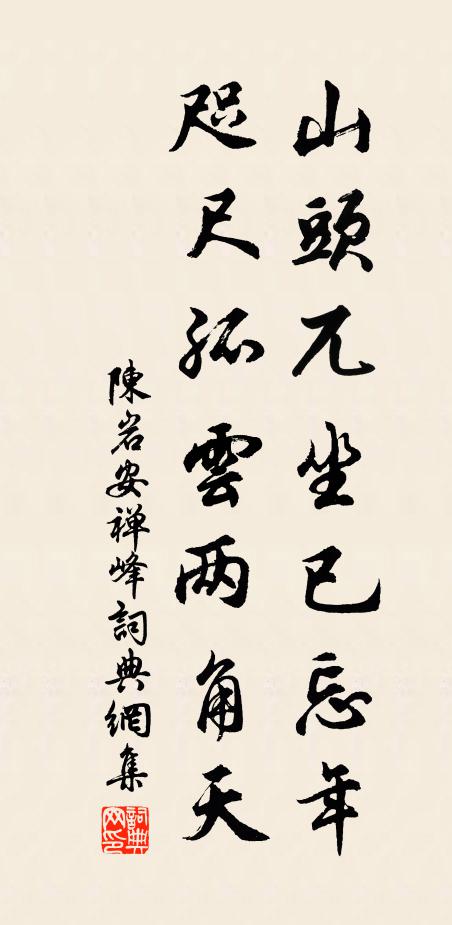 山頭兀坐已忘年
咫尺孤雲两角天
陳岩安禅峰詞典網集
詞典网印